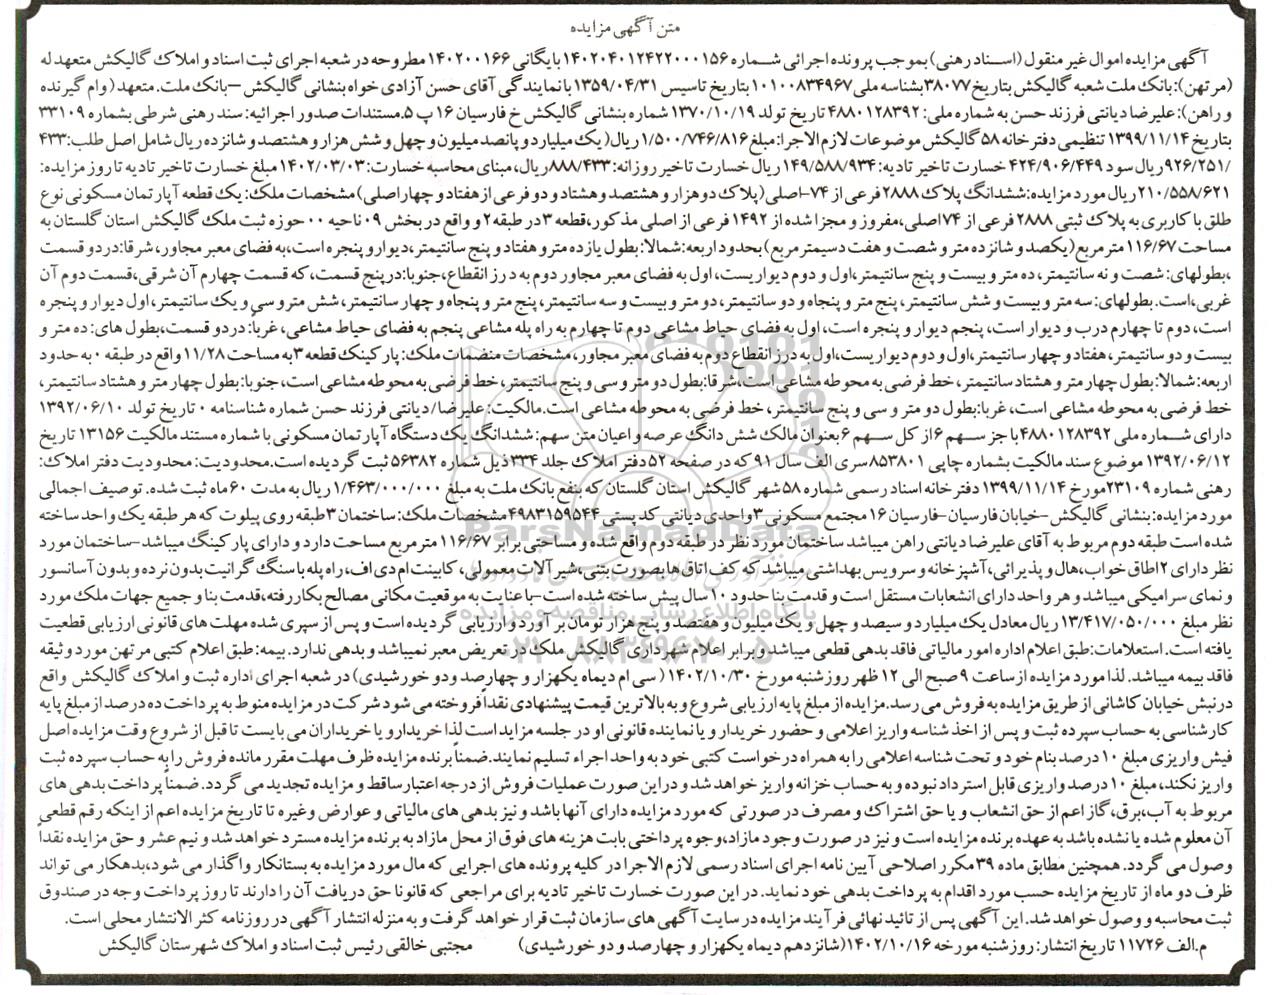 متن آگهی مزایده
آگهی مزایده اموال غیر منقول (اسناد رهنی) بموجب پرونده اجرائی شماره ۱۴۰۲۰۴۰۱۲۴۲۲۰۰۰۱۵۶ بایگانی ۱۴۰۲۰۰۱۶۶ مطروحه در شعبه اجرای ثبت اسناد و املاک گالیکش متعهد له
(مرتهن): بانک ملت شعبه گالیکش بتاریخ ۳۸۰۷۷ بشناسه ملی ۱۰۱۰۰۸۳۴۹۶۷ بتاریخ تاسیس ۱۳۵۹/۰۴/۳۱ با نمایندگی آقای حسن آزادی خواه بنشانی گالیکش – بانک ملت. متعهد (وام گیرنده
و راهن): علیرضا دیانتی فرزند حسن به شماره ملی: ۴۸۸۰۱۲۸۳۹۲ تاریخ تولد ۱۳۷۰/۱۰/۱۹ شماره بنشانی گالیکش خ فارسیان ۱۶ پ ۵. مستندات صدور اجرائیه: سند رهنی شرطی بشماره ۲۳۱۰۹
بتاریخ ۱۳۹۹/۱۱/۱۴ تنظیمی دفتر خانه ۵۸ گالیکش موضوعات لازم الاجرا: مبلغ ۱/۵۰۰/۷۴۶/۸۱۶ ریال (یک میلیارد و پانصد میلیون و چهل و شش هزار و هشتصد و شانزده ریال شامل اصل طلب: ۴۳۳
/۹۲۶/۲۵۱ ریال سود ۴۲۴/۹۰۶/۴۴۹ خسارت تاخیر تادیه: ۱۴۹/۵۸۸/۹۳۴ ریال خسارت تاخیر روزانه: ۸۸۸/۴۳۳ ریال، مبنای محاسبه خسارت: ۱۴۰۲/۰۳/۰۳ مبلغ خسارت تاخیر تادیه تا روز مزایده:
۲۱۰/۵۵۸/۶۲۱ ریال مورد مزایده: ششدانگ پلاک ۲۸۸۸ فرعی از ۷۴-اصلی (پلاک دو هزار و هشتصد و هشتاد و دو فرعی از هفتاد و چهار اصلی) مشخصات ملک: یک قطعه آپارتمان مسکونی نوع
طلق با کاربری به پلاک ثبتی ۲۸۸۸ فرعی از ۷۴ اصلی، مفروز و مجزا شده از ۱۴۹۲ فرعی از اصلی مذکور، قطعه ۳ در طبقه ۲ و واقع در بخش ۰۹ ناحیه ۰۰ حوزه ثبت ملک گالیکش استان گلستان به
مساحت ۱۱۶/۶۷ متر مربع (یکصد و شانزده متر و شصت و هفت دسیمتر مربع) بحدود اربعه: شمالا: بطول یازده متر و هفتاد و پنج سانتیمتر، دیوار و پنجره است، به فضای معبر مجاور، شرقا: در دو قسمت
،بطولهای: شصت و نه سانتیمتر، ده متر و بیست و پنج سانتیمتر، اول و دوم دیواریست، اول به فضای معبر مجاور دوم به درز انقطاع، جنوبا: در پنج قسمت، که قسمت چهارم آن شرقی، قسمت دوم آن
غربی، است. بطولهای: سه متر و بیست و شش سانتیمتر، پنج متر و پنجاه و دو سانتیمتر، دو متر و بیست و سه سانتیمتر، پنج متر و پنجاه و چهار سانتیمتر، شش متر و سی و یک سانتیمتر، اول دیوار و پنجره
است، دوم تا چهارم درب و دیوار است، پنجم دیوار و پنجره است، اول به فضای حیاط مشاعی دوم تا چهارم به راه پله مشاعی پنجم به فضای حیاط مشاعی، غرباً: در دو قسمت، بطول های: ده متر و
بیست و دو سانتیمتر، هفتاد و چهار سانتیمتر، اول و دوم دیواریست، اول به درز انقطاع دوم به فضای معبر مجاور، مشخصات منضمات ملک: پارکینک قطعه ۳ به مساحت ۱۱/۲۸ واقع در طبقه ۰ به حدود
اربعه: شمالا: بطول چهار متر و هشتاد سانتیمتر، خط فرضی به محوطه مشاعی است، شرقا: بطول دو متر و سی و پنج سانتیمتر، خط فرضی به محوطه مشاعی است، جنوبا: بطول چهار متر و هشتاد سانتیمتر،
خط فرضی به محوطه مشاعی است، غربا: بطول دو متر و سی و پنج سانتیمتر، خط فرضی به محوطه مشاعی است. مالکیت: علیرضا/دیانتی فرزند حسن شماره شناسنامه ۰ تاریخ تولد ۱۳۹۲/۰۶/۱۰
دارای شماره ملی ۴۸۸۰۱۲۸۳۹۲ با جز سهم ۶ از کل سهم ۶ بعنوان مالک شش دانگ عرصه و اعیان متن سهم: ششدانگ یک دستگاه آپارتمان مسکونی با شماره مستند مالکیت ۱۳۱۵۶ تاریخ
۱۳۹۲/۰۶/۱۲ موضوع سند مالکیت بشماره چاپی ۸۵۳۸۰۱ سری الف سال ۹۱ که در صفحه ۵۲ دفتر املاک جلد ۳۳۴ ذیل شماره ۵۶۳۸۲ ثبت گردیده است. محدودیت: محدودیت دفتر املاک:
رهنی شماره ۲۳۱۰۹ مورخ ۱۳۹۹/۱۱/۱۴ دفتر خانه اسناد رسمی شماره ۵۸ شهر گالیکش استان گلستان که بنفع بانک ملت به مبلغ ۱/۴۶۳/۰۰۰/۰۰۰ ریال به مدت ۶۰ ماه ثبت شده. توصیف اجمالی
مورد مزایده: بنشانی گالیکش-خیابان فارسیان-فارسیان ۱۶ مجتمع مسکونی ۳ واحدی دیانتی کد پستی ۴۹۸۳۱۵۹۵۴۴ مشخصات ملک: ساختمان ۳ طبقه روی پیلوت که هر طبقه یک واحد ساخته
شده است طبقه دوم مربوط به آقای علیرضا دیانتی راهن میباشد ساختمان مورد نظر در طبقه دوم واقع شده و مساحتی برابر ۱۱۶/۶۷ متر مربع مساحت دارد و دارای پارکینگ میباشد-ساختمان مورد
نظر دارای ۲ اطاق خواب، هال و پذیرائی، آشپزخانه و سرویس بهداشتی میباشد که کف اتاق ها بصورت بتنی، شیرآلات معمولی، کابینت ام دی اف، راه پله با سنگ گرانیت بدون نرده و بدون آسانسور
و نمای سرامیکی میباشد و هر واحد دارای انشعابات مستقل است و قدمت بنا حدود ۱۰ سال پیش ساخته شده است-با عنایت به موقعیت مکانی مصالح بکار رفته، قدمت بنا و جمیع جهات ملک مورد
نظر مبلغ ۱۳/۴۱۷/۰۵۰/۰۰۰ ریال معادل یک میلیارد و سیصد و چهل و یک میلیون و هفتصد و پنج هزار تومان برآورد و ارزیابی گردیده است و پس از سپری شده مهلت های قانونی ارزیابی قطعیت
یافته است. استعلامات: طبق اعلام اداره امور مالیاتی فاقد بدهی قطعی میباشد و برابر اعلام شهرداری گالیکش ملک در تعریض معبر نمیباشد و بدهی ندارد. بیمه: طبق اعلام کتبی مرتهن مورد وثیقه
فاقد بیمه میباشد. لذا مورد مزایده از ساعت ۹ صبح الی ۱۲ ظهر روز شنبه مورخ ۱۴۰۲/۱۰/۳۰ (سی ام دیماه یکهزار و چهارصد ودو خورشیدی) در شعبه اجرای اداره ثبت و املاک گالیکش واقع
در نبش خیابان کاشانی از طریق مزایده به فروش می رسد. مزایده از مبلغ پایه ارزیابی شروع و به بالاترین قیمت پیشنهادی نقداً فروخته می شود شرکت در مزایده منوط به پرداخت ده درصد از مبلغ پایه
کارشناسی به حساب سپرده ثبت و پس از اخذ شناسه واریز اعلامی و حضور خریدار و یا نماینده قانونی او در جلسه مزاید است لذا خریدار و یا خریداران می بایست تا قبل از شروع وقت مزایده اصل
فیش واریزی مبلغ ۱۰ درصد بنام خود و تحت شناسه اعلامی را به همراه درخواست کتبی خود به واحد اجراء تسلیم نمایند. ضمناً برنده مزایده ظرف مهلت مقرر مانده فروش را به حساب سپرده ثبت
واریز نکند، مبلغ ۱۰ درصد واریزی قابل استرداد نبوده و به حساب خزانه واریز خواهد شد و در این صورت عملیات فروش از درجه اعتبار ساقط و مزایده تجدید می گردد. ضمناً پرداخت بدهی های
مربوط به آب، برق، گاز اعم از حق انشعاب و یا حق اشتراک و مصرف در صورتی که مورد مزایده دارای آنها باشد و نیز بدهی های مالیاتی و عوارض وغیره تا تاریخ مزایده اعم از اینکه رقم قطعی
آن معلوم شده یا نشده باشد به عهده برنده مزایده است و نیز در صورت وجود مازاد، وجوه پرداختی بابت هزینه های فوق از محل مازاد به برنده مزایده مسترد خواهد شد و نیم عشر و حق مزایده نقداً
وصول می گردد. همچنین مطابق ماده ۳۹ مکرر اصلاحی آیین نامه اجرای اسناد رسمی لازم الاجرا در کلیه پرونده های اجرایی که مال مورد مزایده به بستانکار واگذار می شود، بدهکار می تواند
ظرف دو ماه از تاریخ مزایده حسب مورد اقدام به پرداخت بدهی خود نماید. در این صورت خسارت تاخیر تادیه برای مراجعی که قانونا حق دریافت آن را دارند تا روز پرداخت وجه در صندوق
ثبت محاسبه و وصول خواهد شد. این آگهی پس از تائید نهائی فرآیند مزایده در سایت آگهی های سازمان ثبت قرار خواهد گرفت و به منزله انتشار آگهی در روزنامه کثر الانتشار محلی است.
م.الف ۱۱۷۲۶ تاریخ انتشار: روز شنبه مورخه ۱۴۰۲/۱۰/۱۶ (شانزدهم دیماه یکهزار و چهارصد و دو خورشیدی) مجتبی خالقی رئیس ثبت اسناد و املاک شهرستان گالیکش
ParsNamadData
پایگاه اطلاع رسانی مناقصه و مزایده